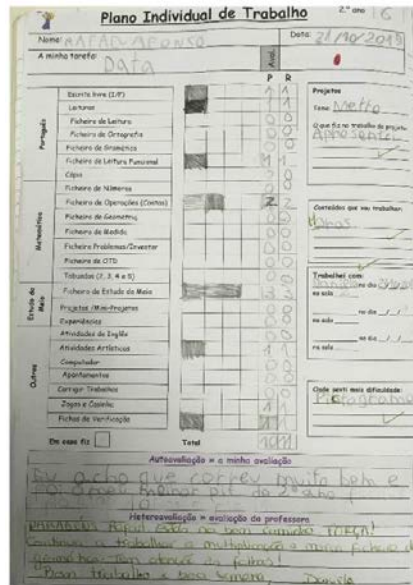 Plano Individual de Trabalho
2.º ano
Nome: RAFAEL AFONSO
Data: 21/10/2019
A minha tarefa:
Data
Aval.
P R
Português
Escrita livre (I/P) 1 1
Leituras 1 1
Ficheiro de Leitura 0 0
Ficheiro de Ortografia 0 0
Ficheiro de Gramática 0 0
Ficheiro de Leitura Funcional 1 1
Cópia
Matemática
Ficheiro de Números
Ficheiro de Operações (Contas) 2 2
Ficheiro de Geometria 0 0
Ficheiro de Medida 0 0
Ficheiro Problemas/Inventor 0 0
Ficheiro de OTD 0 0
Tabuadas (2, 3, 4 e 5) 0 0
Estudo do Meio
Ficheiro de Estudo do Meio 3 3
Projetos /Mini-Projetos
Experiências
Outros
Atividades de Inglês 0 0
Atividades Artísticas 1 1
Computador 0 0
Apontamentos 0 0
Corrigir Trabalhos 0 0
Jogos e Casinha
Fichas de Verificação 1 1
Em casa fiz
Total 10 11
Projetos
Tema: Metro
O que fiz no trabalho de projeto:
Apresentei
Conteúdos que vou trabalhar:
Horas
Trabalhei com:
no dia
na sala
no dia
na sala
no dia
na sala
Onde senti mais dificuldade:
Pictograma
Autoavaliação = a minha avaliação
Eu acho que correu muito bem e
foi o meu melhor pit do 2º ano
Heteroavaliação = avaliação da professora
PARABÉNS Rafael! Estás no bom caminho. FORÇA!
Continua a trabalhar a multiplicação e mais ficheiro de
gramática. Tem atenção às faltas!
Bom trabalho e boa semana, Daniela